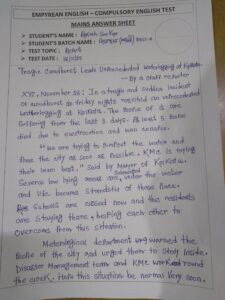 EMPYREAN ENGLISH – COMPULSORY ENGLISH TEST
MAINS ANSWER SHEET
STUDENT'S NAME :
STUDENT'S BATCH NAME :
TEST TOPIC : Report
TEST DATE :
Tragic Cloudburst Leads Unprecedented waterlogging at Kolkata
— By a staff reporter
XYZ, November 28: In a tragic and sudden incident
of cloudburst on friday night resulted an unprecedented
waterlogging at Kolkata. The People of are
suffering from the last 3 days. At least 8 People
died due to electrocution and
"We are trying to pumpout the water and
free the city as soon as Possible. KMC is trying
their level best." Said by Mayor of Kolkata.
Several low lying areas are under the water
and life became Standstill of those Places.
Schools are closed now and the residents
are Staying there, helping each other to
overcome from this situation.
Meterological department warned the
People of the city and urged them to Stay inside.
Disaster Management team and KMC work round
the clock. Hope this situation be normal very soon.